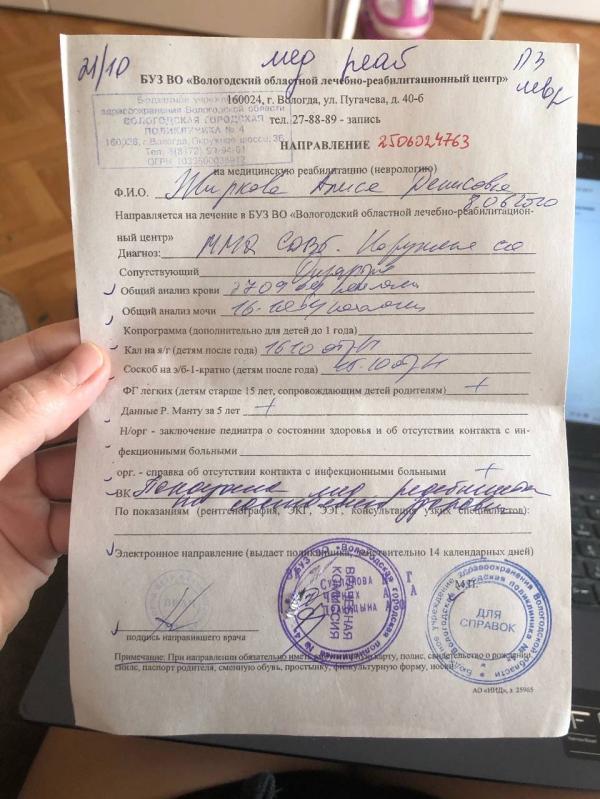 21/10 мед реаб ПЗ
невр
БУЗ ВО «Вологодский областной лечебно-реабилитационный центр»
160024, г. Вологда, ул. Пугачева, д. 40-б
тел. 27-88-89 - запись
Бюджетное учреждение
здравоохранения Вологодской области
ВОЛОГОДСКАЯ ГОРОДСКАЯ
ПОЛИКЛИНИКА № 4
160038, г. Вологда, Окружное шоссе, 3б
НАПРАВЛЕНИЕ 2506024763
на медицинскую реабилитацию (неврологию)
Ф.И.О. Жиркова Алиса Денисовна
8.06.2020
Направляется на лечение в БУЗ ВО «Вологодский областной лечебно-реабилитацион-
ный центр»
Диагноз: ММД СДВГ. Нарушение
Сопутствующий Дизартрия
Общий анализ крови 27.09
Общий анализ мочи 16.10
Копрограмма (дополнительно для детей до 1 года)
Кал на я/г (детям после года) 16.10 отр/Н
Соскоб на э/б-1-кратно (детям после года) отр/Н
ФГ легких (детям старше 15 лет, сопровождающим детей родителям) +
Данные Р. Манту за 5 лет +
Н/орг - заключение педиатра о состоянии здоровья и об отсутствии контакта с ин-
фекционными больными
орг. - справка об отсутствии контакта с инфекционными больными +
ВК Показана мед реабилитация
По показаниям (рентгенография, ЭКГ, ЭЭГ, консультация узких специалистов):
Электронное направление (выдает поликлиника, действительно 14 календарных дней)
ВРАЧЕБНАЯ
КОМИССИЯ
М.П.
ДЛЯ
СПРАВОК
подпись направившего врача
Примечание: При направлении обязательно иметь карту, полис, свидетельство о рождении,
снилс, паспорт родителя, сменную обувь, простынку, физкультурную форму, носки
АО «НИД», з. 25965